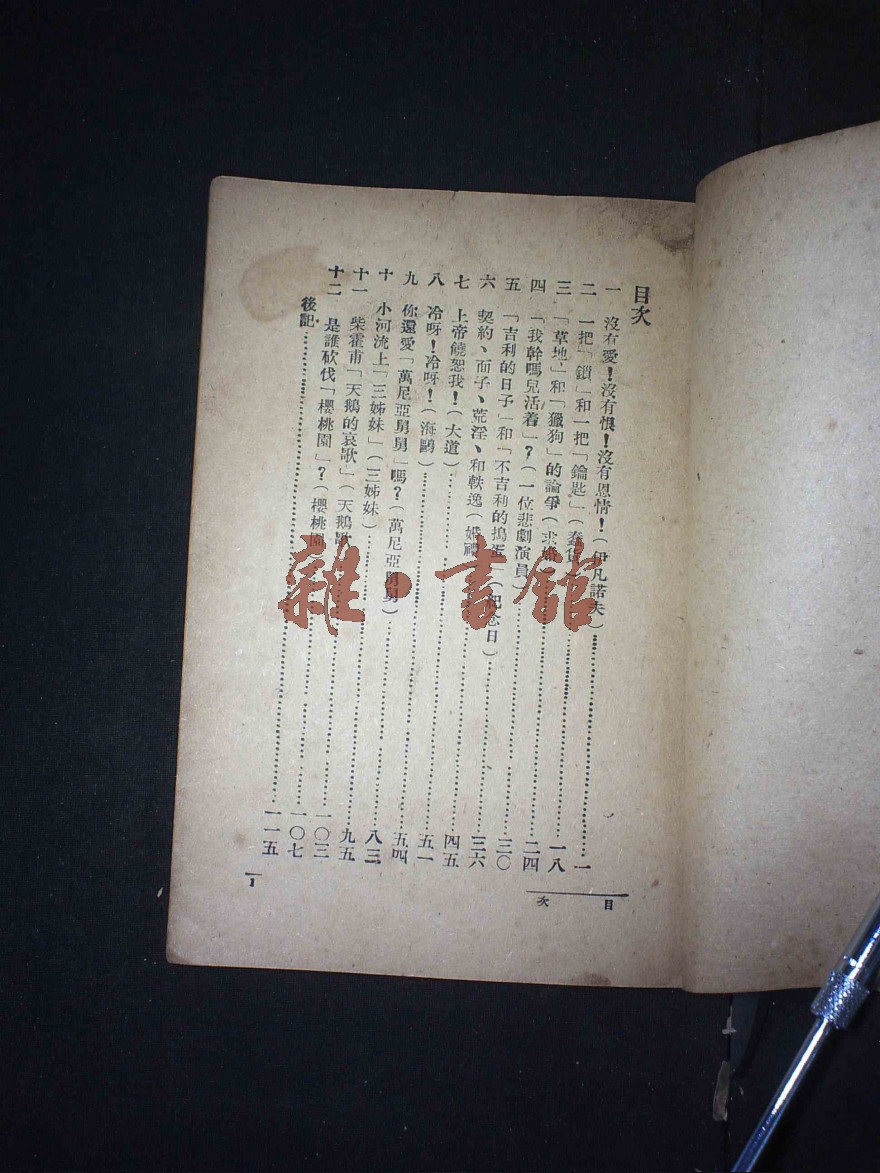 目次
一 沒有愛!沒有恨!沒有恩情!(伊凡諾夫)……一
二 一把「鎖」和一把「鑰匙」(蠢……一八
三 「草地」和「獵狗」的論爭(求婚……二四
四 「我幹嗎兒活着」?(一位悲劇演員)……三〇
五 「吉利的日子」和「不吉利的搗蛋」(紀念日)……三六
六 契約、面子、荒淫、和軼逸(婚禮……四五
七 上帝饒恕我!(大道)……五一
八 冷呀!冷呀!(海鷗)……五四
九 你還愛「萬尼亞舅舅」嗎?(萬尼亞舅舅)……八三
十 小河流上「三姊妹」(三姊妹)……九五
十一 柴霍甫「天鵝的哀歌」(天鵝歌……一〇三
十二 是誰砍伐「櫻桃園」?(櫻桃園)……一〇七
後記……一一五
目次
1
雜·書館